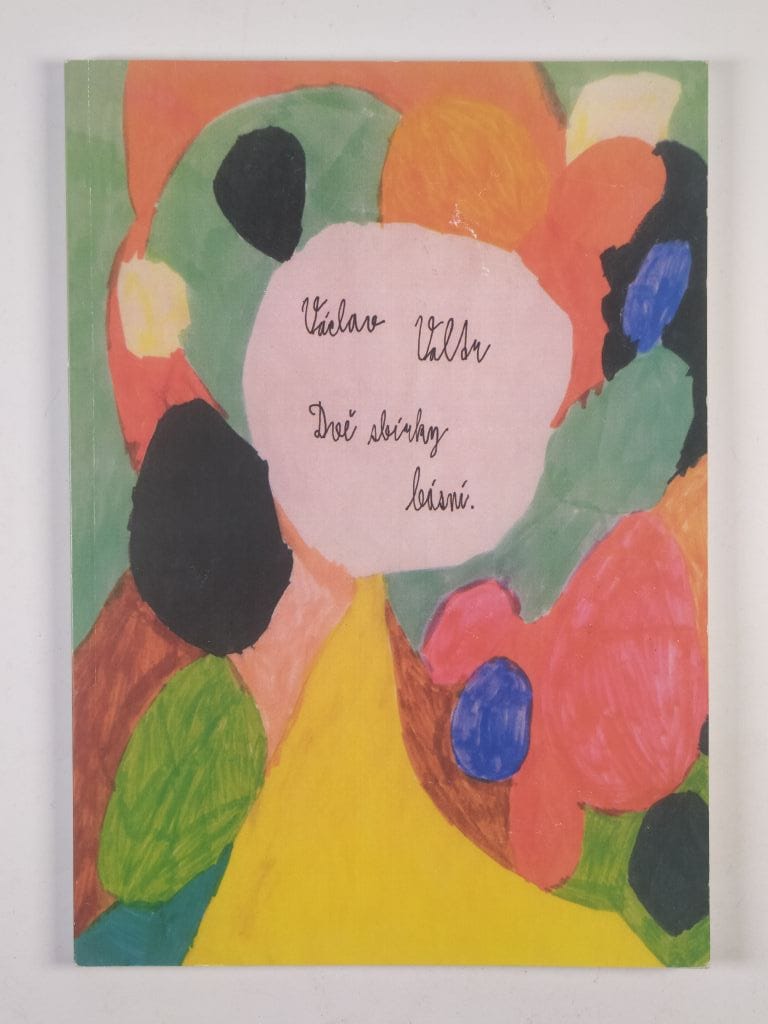 Václav Valtr
Dvě sbírky
básní.